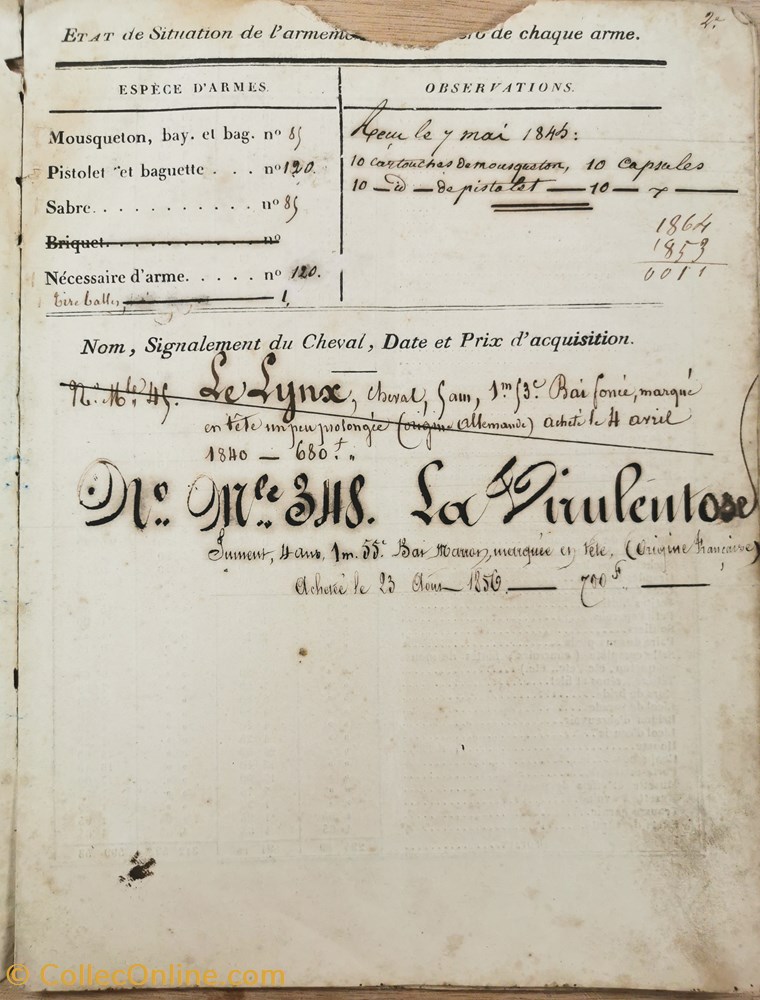 2.
ETAT de Situation de l'armem ro de chaque arme.
ESPÈCE D'ARMES.
OBSERVATIONS.
Mousqueton, bay. et bag. nº 85
Pistolet et baguette . . . nº 120.
Sabre. . . . . . . . . . . nº 85
Briquet. . . . . . . . . . nº
Nécessaire d'arme. . . . . nº 120.
Tire balles, 1.
Reçu le 7 mai 1845:
10 cartouches de mousqueton, 10 capsules
10 — id — de pistolet — 10 —
1864
1853
0011
Nom, Signalement du Cheval, Date et Prix d'acquisition.
Nº Mle 45. Le Lynx, cheval, 5 ans, 1m 53c Bai foncé, marqué
en tête un peu prolongée (origine allemande) acheté le 4 avril
1840 — 680 f „
Nº Mle 348. La Virulente
Jument, 4 ans, 1m. 55c Bai Marron, marquée en tête, (Origine Française)
Achetée le 23 Août 1856. — 700 f. —
© CollecOnline.com